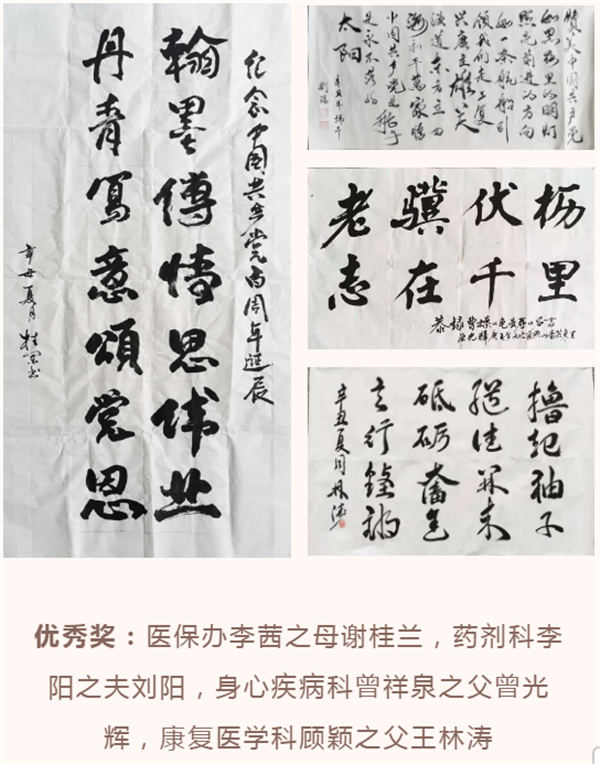 纪念中国共产党百周年诞辰
翰墨傳情思伟业
丹青寫意頌党恩
辛丑夏月 桂兰书
赞美中国共产党
如黑夜里的明灯
照亮前进的方向
如一条航船引
领我们走上复
中国共产党是
是永不落的
太阳
辛丑年端午
老骥伏枥
志在千里
恭録曹操
撸起袖子
继往开来
砥砺奮
辛丑夏月林涛
优秀奖：医保办李茜之母谢桂兰，药剂科李
阳之夫刘阳，身心疾病科曾祥泉之父曾光
辉，康复医学科顾颖之父王林涛